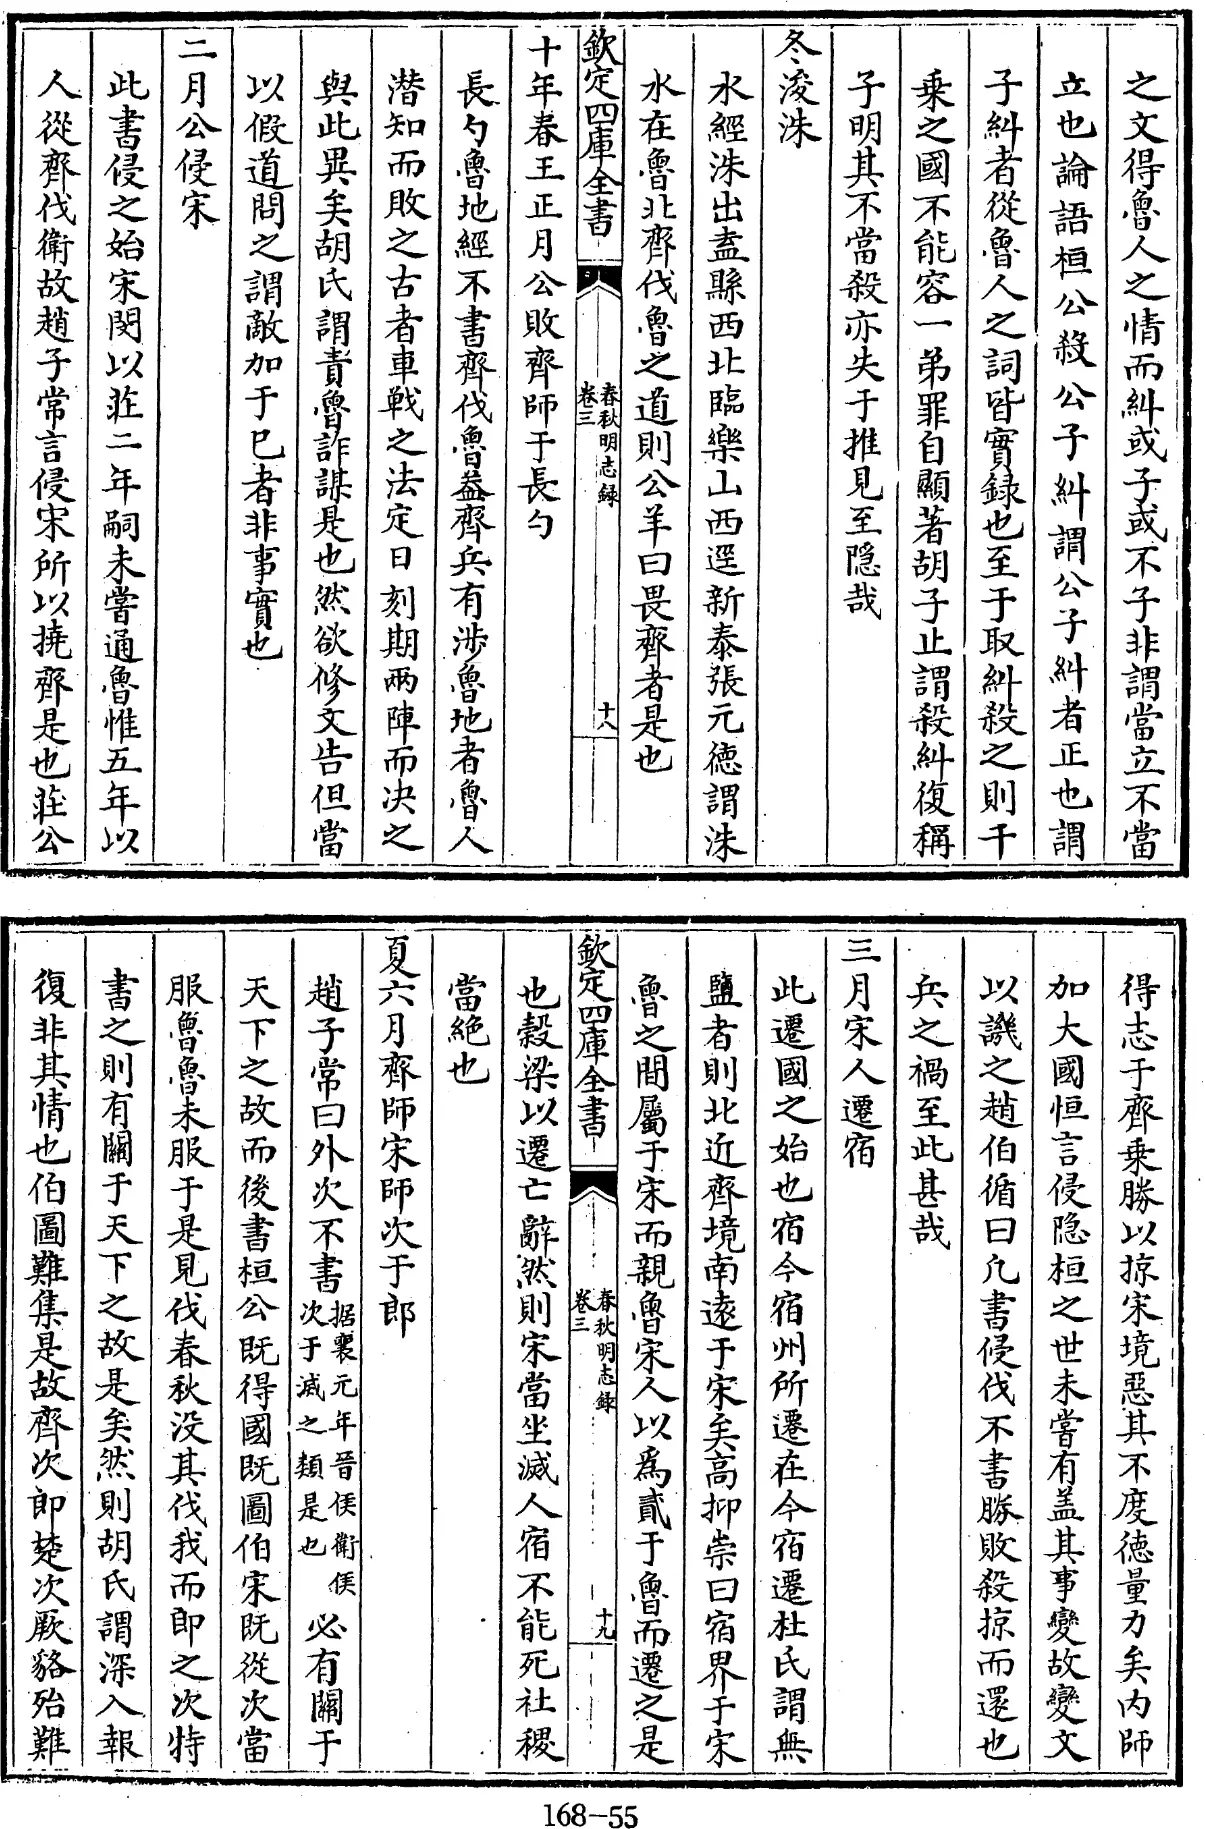 之文得魯人之情而糾或子或不子非謂當立不當
立也論語桓公殺公子糾謂公子糾者正也謂
子糾者從魯人之詞皆實録也至于取糾殺之則千
乗之國不能容一弟罪自顯著胡子止謂殺糾復稱
子明其不當殺亦失于推見至隠哉
冬浚洙
水經洙出葢縣西北臨樂山西逕新泰張元徳謂洙
水在魯北齊伐魯之道則公羊曰畏齊者是也
欽定四庫全書
春秋明志録
卷三
十八
十年春王正月公敗齊師于長勺
長勺魯地經不書齊伐魯葢齊兵有渉魯地者魯人
潜知而敗之古者車戰之法定日刻期兩陣而决之
與此異矣胡氏謂責魯詐謀是也然欲修文告但當
以假道問之謂敵加于已者非事實也
二月公侵宋
此書侵之始宋閔以莊二年嗣未嘗通魯惟五年以
人從齊伐衛故趙子常言侵宋所以撓齊是也莊公
得志于齊乗勝以掠宋境惡其不度徳量力矣内師
加大國恒言侵隠桓之世未嘗有盖其事變故變文
以譏之趙伯循曰凡書侵伐不書勝敗殺掠而還也
兵之禍至此甚哉
三月宋人遷宿
此遷國之始也宿今宿州所遷在今宿遷杜氏謂無
鹽者則北近齊境南逺于宋矣高抑崇曰宿界于宋
魯之間屬于宋而親魯宋人以爲貳于魯而遷之是
欽定四庫全書
春秋明志録
卷三
十九
也穀梁以遷亡辭然則宋當坐滅人宿不能死社稷
當絶也
夏六月齊師宋師次于郎
趙子常曰外次不書据襄元年晉侯衛侯次于滅之類是也必有闗于
天下之故而後書桓公既得國既圖伯宋既從次當
服魯魯未服于是見伐春秋没其伐我而即之次特
書之則有闗于天下之故是矣然則胡氏謂深入報
復非其情也伯圖難集是故齊次郎楚次厥貉殆難